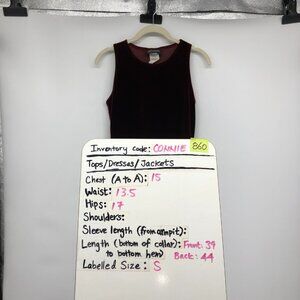 Inventory code: CONNIE 860
Tops/Dresses/Jackets
Chest (A to A): 15
Waist: 13.5
Hips: 17
Shoulders:
Sleeve length (from armpit):
Length (bottom of collar): Front: 39
to bottom hem) Back: 44
Labelled Size: S